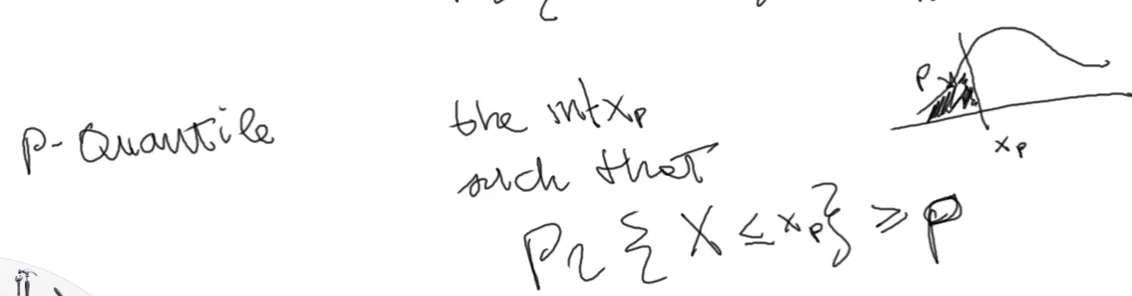 p-Quantile
the inf x_p
such that
Pr { X ≤ x_p } ≥ p
p
x_p